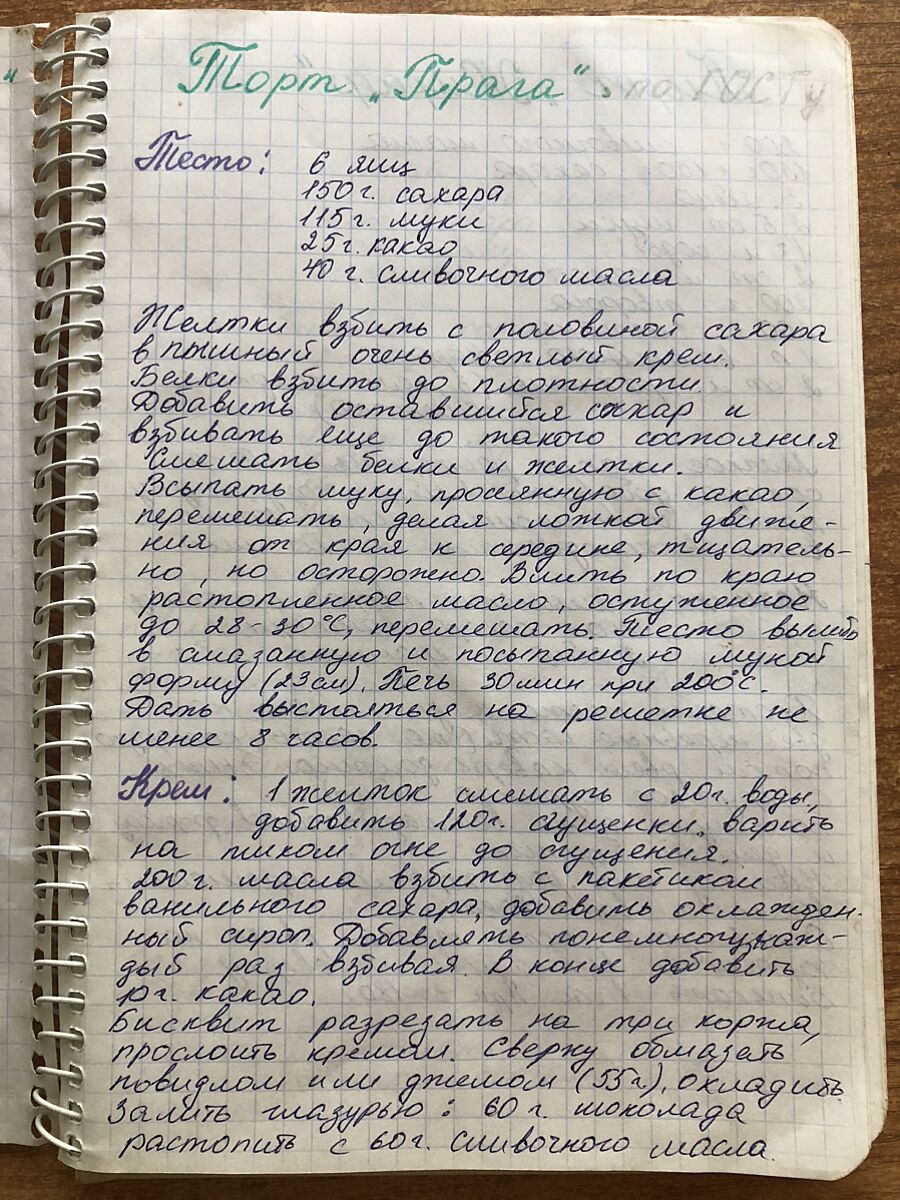 Торт „Прага“ по ГОСТу
Тесто: 6 яиц
150 г. сахара
115 г. муки
25 г. какао
40 г. сливочного масла
Желтки взбить с половиной сахара
в пышный очень светлый крем.
Белки взбить до плотности.
Добавить оставшийся сахар и
взбивать еще до такого состояния
Смешать белки и желтки.
Всыпать муку, просеянную с какао,
перемешать, делая ложкой движе-
ния от края к середине, тщатель-
но, но осторожно. Влить по краю
растопленное масло, остуженное
до 28-30°С, перемешать. Тесто вылить
в смазанную и посыпанную мукой
форму (23 см). Печь 30 мин при 200°С.
Дать выстояться на решетке не
менее 8 часов.
Крем: 1 желток смешать с 20 г. воды,
добавить 120 г. сгущенки, варить
на тихом огне до сгущения.
200 г. масла взбить с пакетиком
ванильного сахара, добавить охлажден-
ный сироп. Добавлять понемногу, каж-
дый раз взбивая. В конце добавить
10 г. какао.
Бисквит разрезать на три коржа,
прослоить кремом. Сверху обмазать
повидлом или джемом (55 г.), охладить.
Залить глазурью: 60 г. шоколада
растопить с 60 г. сливочного масла.